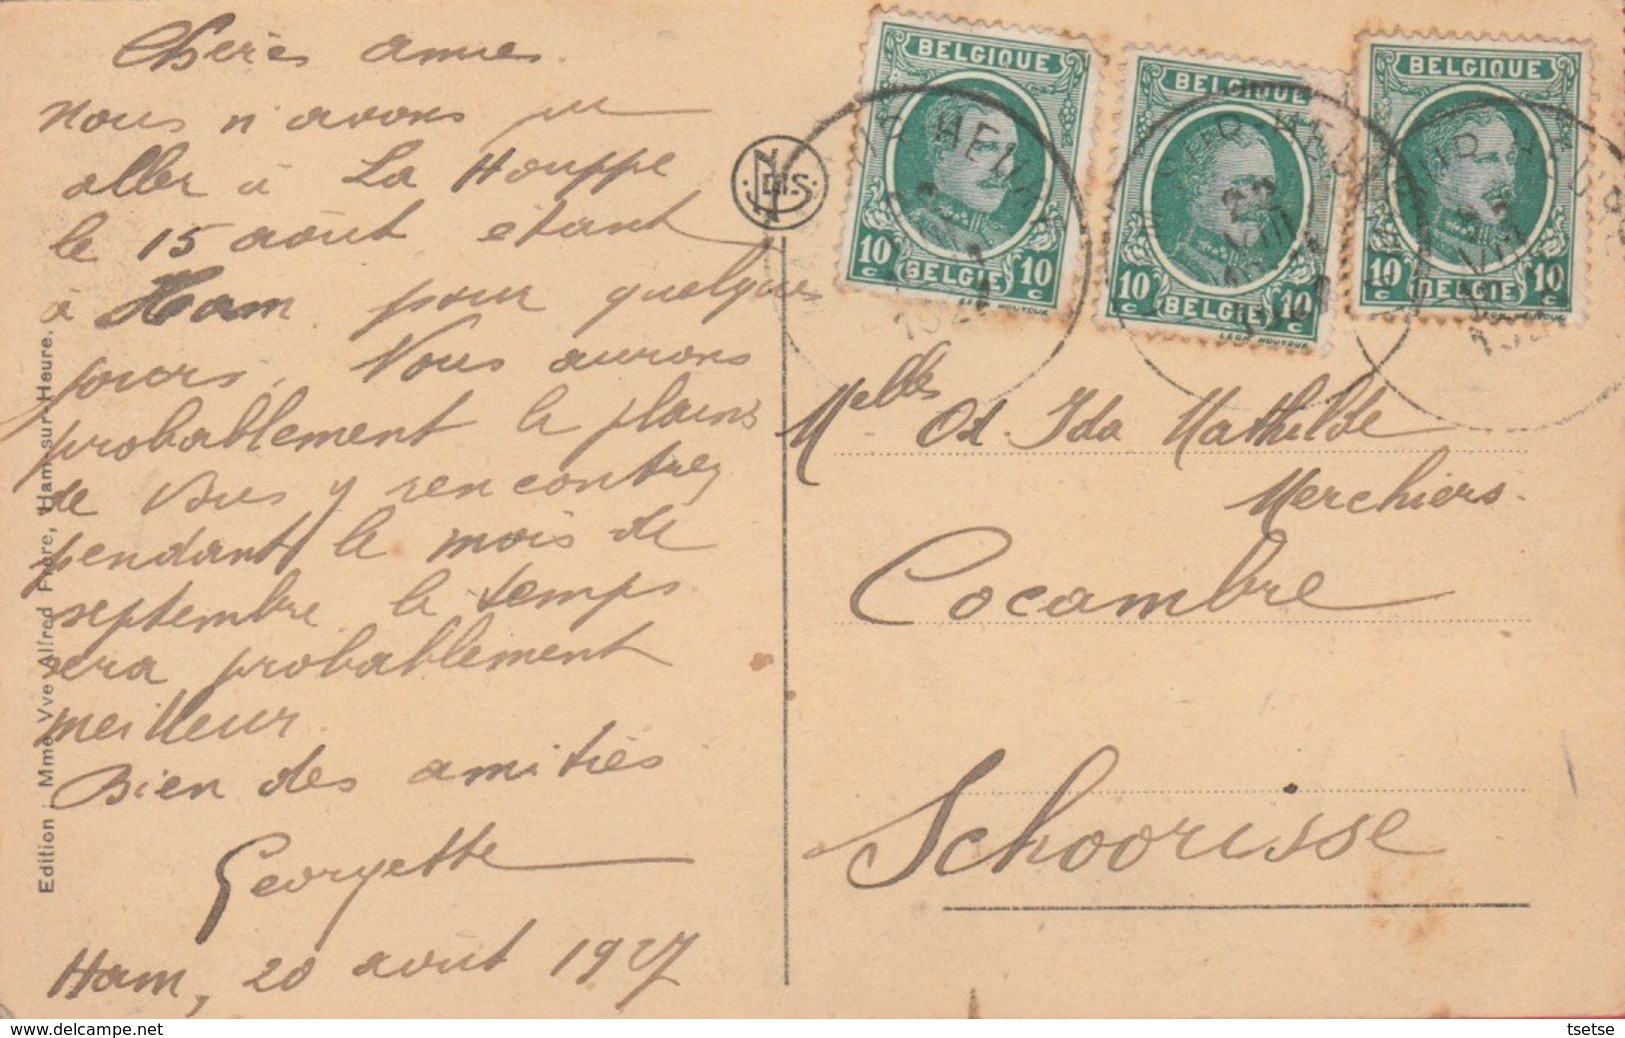 Chères amies.
Nous n'avons pu
aller à La Houppe
le 15 août étant
à Ham pour quelques
jours. Nous aurons
probablement le plaisir
de vous y rencontrer
pendant le mois de
septembre le temps
sera probablement
meilleur.
Bien des amitiés
Georgette
Ham, 20 août 1927
Edition : Mme Vve Alfred Frère, Ham-sur-Heure.
BELGIQUE
10c BELGIE 10c
BELGIQUE
10c BELGIE 10c
LEGR. HOUYOUX
BELGIQUE
10c BELGIE 10c
Melles Od. Ida Mathilde
Merchiers.
Cocambre
Schoorisse
www.delcampe.net
tsetse